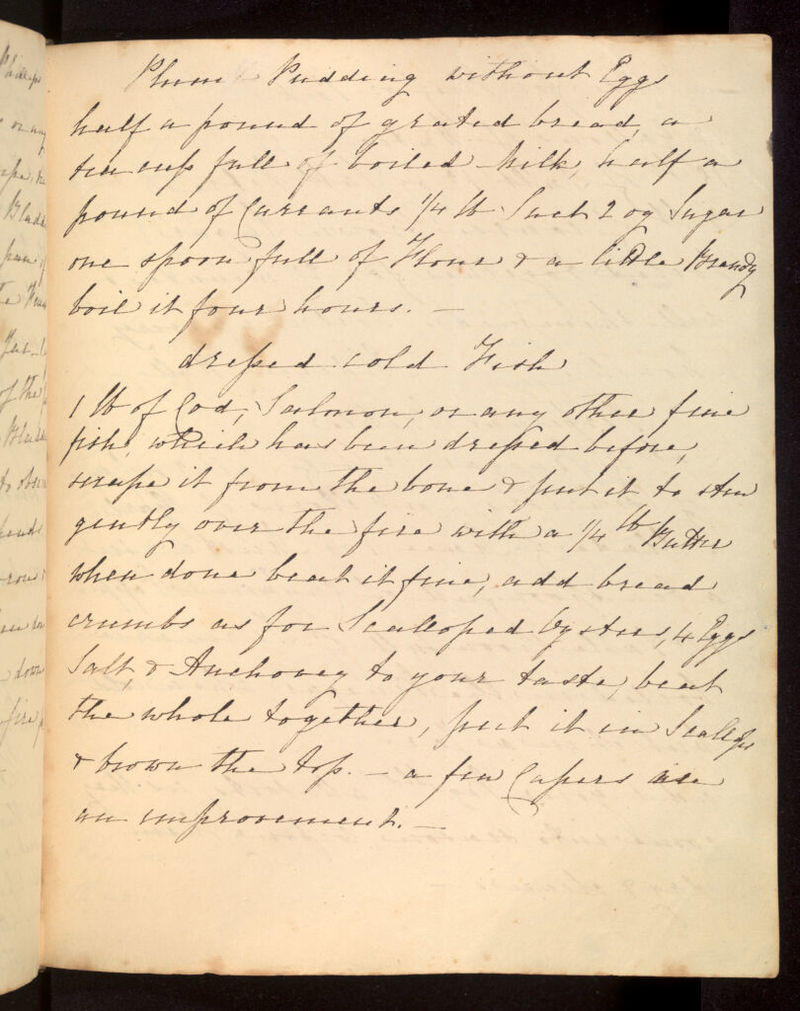 Plum Pudding without Eggs
half a pound of grated bread, a
tea cup full of boiled Milk, half a
pound of Currants 1/4 lb Suet 2 oz Sugar
one spoon full of Flour & a little Brandy
boil it four hours. —
dressed cold Fish
1 lb of Cod, Salmon, or any other fine
fish, which has been dressed before,
scrape it from the bone & put it to stew
gently over the fire with a 1/4 lb Butter
when done beat it fine, add bread
crumbs as for Scalloped Oysters, 4 Eggs
Salt, & Anchovey to your taste, beat
the whole together, put it in Scallops
& brown the top. — a few Capers are
an improvement. —